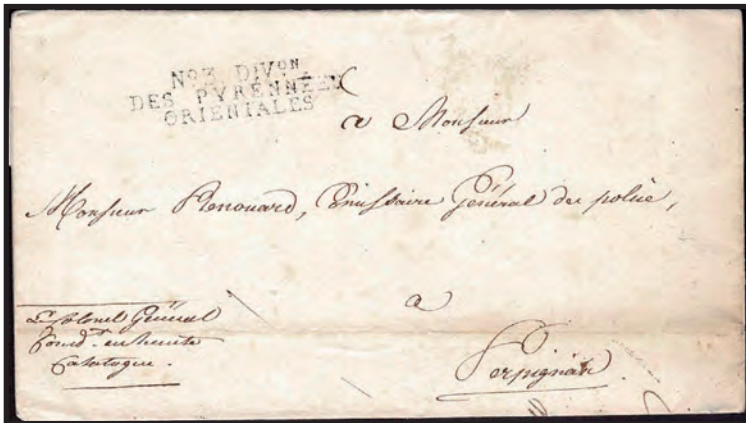 Nº 3. DIVᵒⁿ
DES PYRENNÉES
ORIENTALES
a Monsieur
Monsieur Renouard, Comissaire Général de police,
a
Perpignan
Le Colonel Général
Comdᵗ en haute
Catalogne.